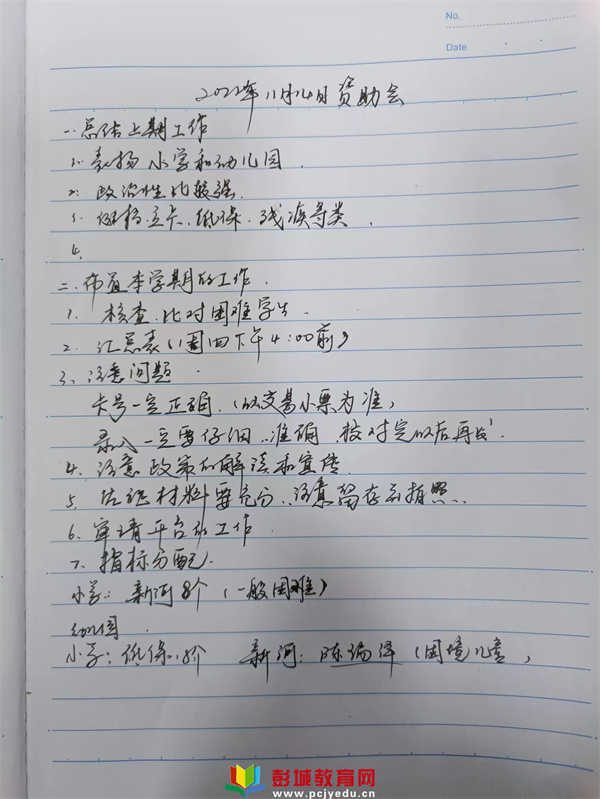 No.
Date
2022年11月14日资助会
一.总结上期工作
1. 表扬小学和幼儿园.
2. 政治性比较强.
3. 建档立卡、低保、残疾等类.
4.
二、布置本学期的工作.
1. 核查、比对困难学生.
2. 汇总表(周四下午4:00前)
3、注意问题.
卡号一定正确.(以交易小票为准)
录入一定要仔细、准确,校对完以后再
4、注意政策的解读和宣传
5、佐证材料要充分、注意留存和拍照.
6、申请平台的工作.
7、指标分配.
小学: 新河8个 (一般困难)
幼儿园.
小学: 低保 新河: 陈 (困境儿童)
彭城教育网
www.pcjyedu.cn